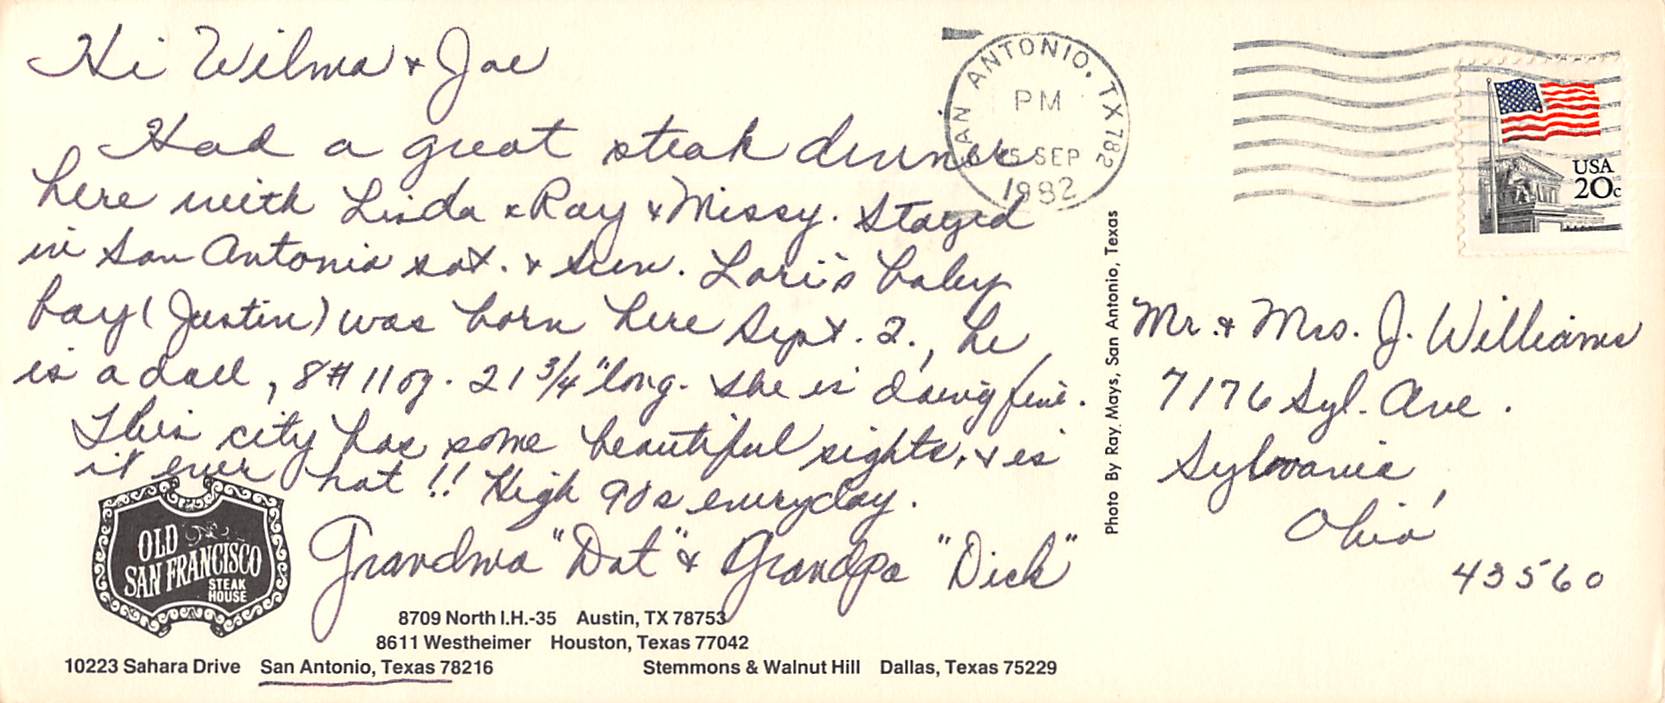 Hi Wilma & Joe
Had a great steak dinner
here with Linda & Ray & Missy. Stayed
in San Antonio sat. & Sun. Lori's baby
boy (Justin) was born here Sept. 2., he
is a doll, 8# 11 oz. 21 3/4" long. She is doing fine.
This city has some beautiful sights, & is
it ever hot !! High 90s everyday.
Grandma "Dot" & Grandpa "Dick"
OLD
SAN FRANCISCO
STEAK
HOUSE
8709 North I.H.-35 Austin, TX 78753
8611 Westheimer Houston, Texas 77042
10223 Sahara Drive San Antonio, Texas 78216 Stemmons & Walnut Hill Dallas, Texas 75229
Photo By Ray Mays, San Antonio, Texas
SAN ANTONIO, TX 782
PM
5 SEP
1982
USA
20c
Mr. & Mrs. J. Williams
7176 Syl. Ave.
Sylvania,
Ohio
43560